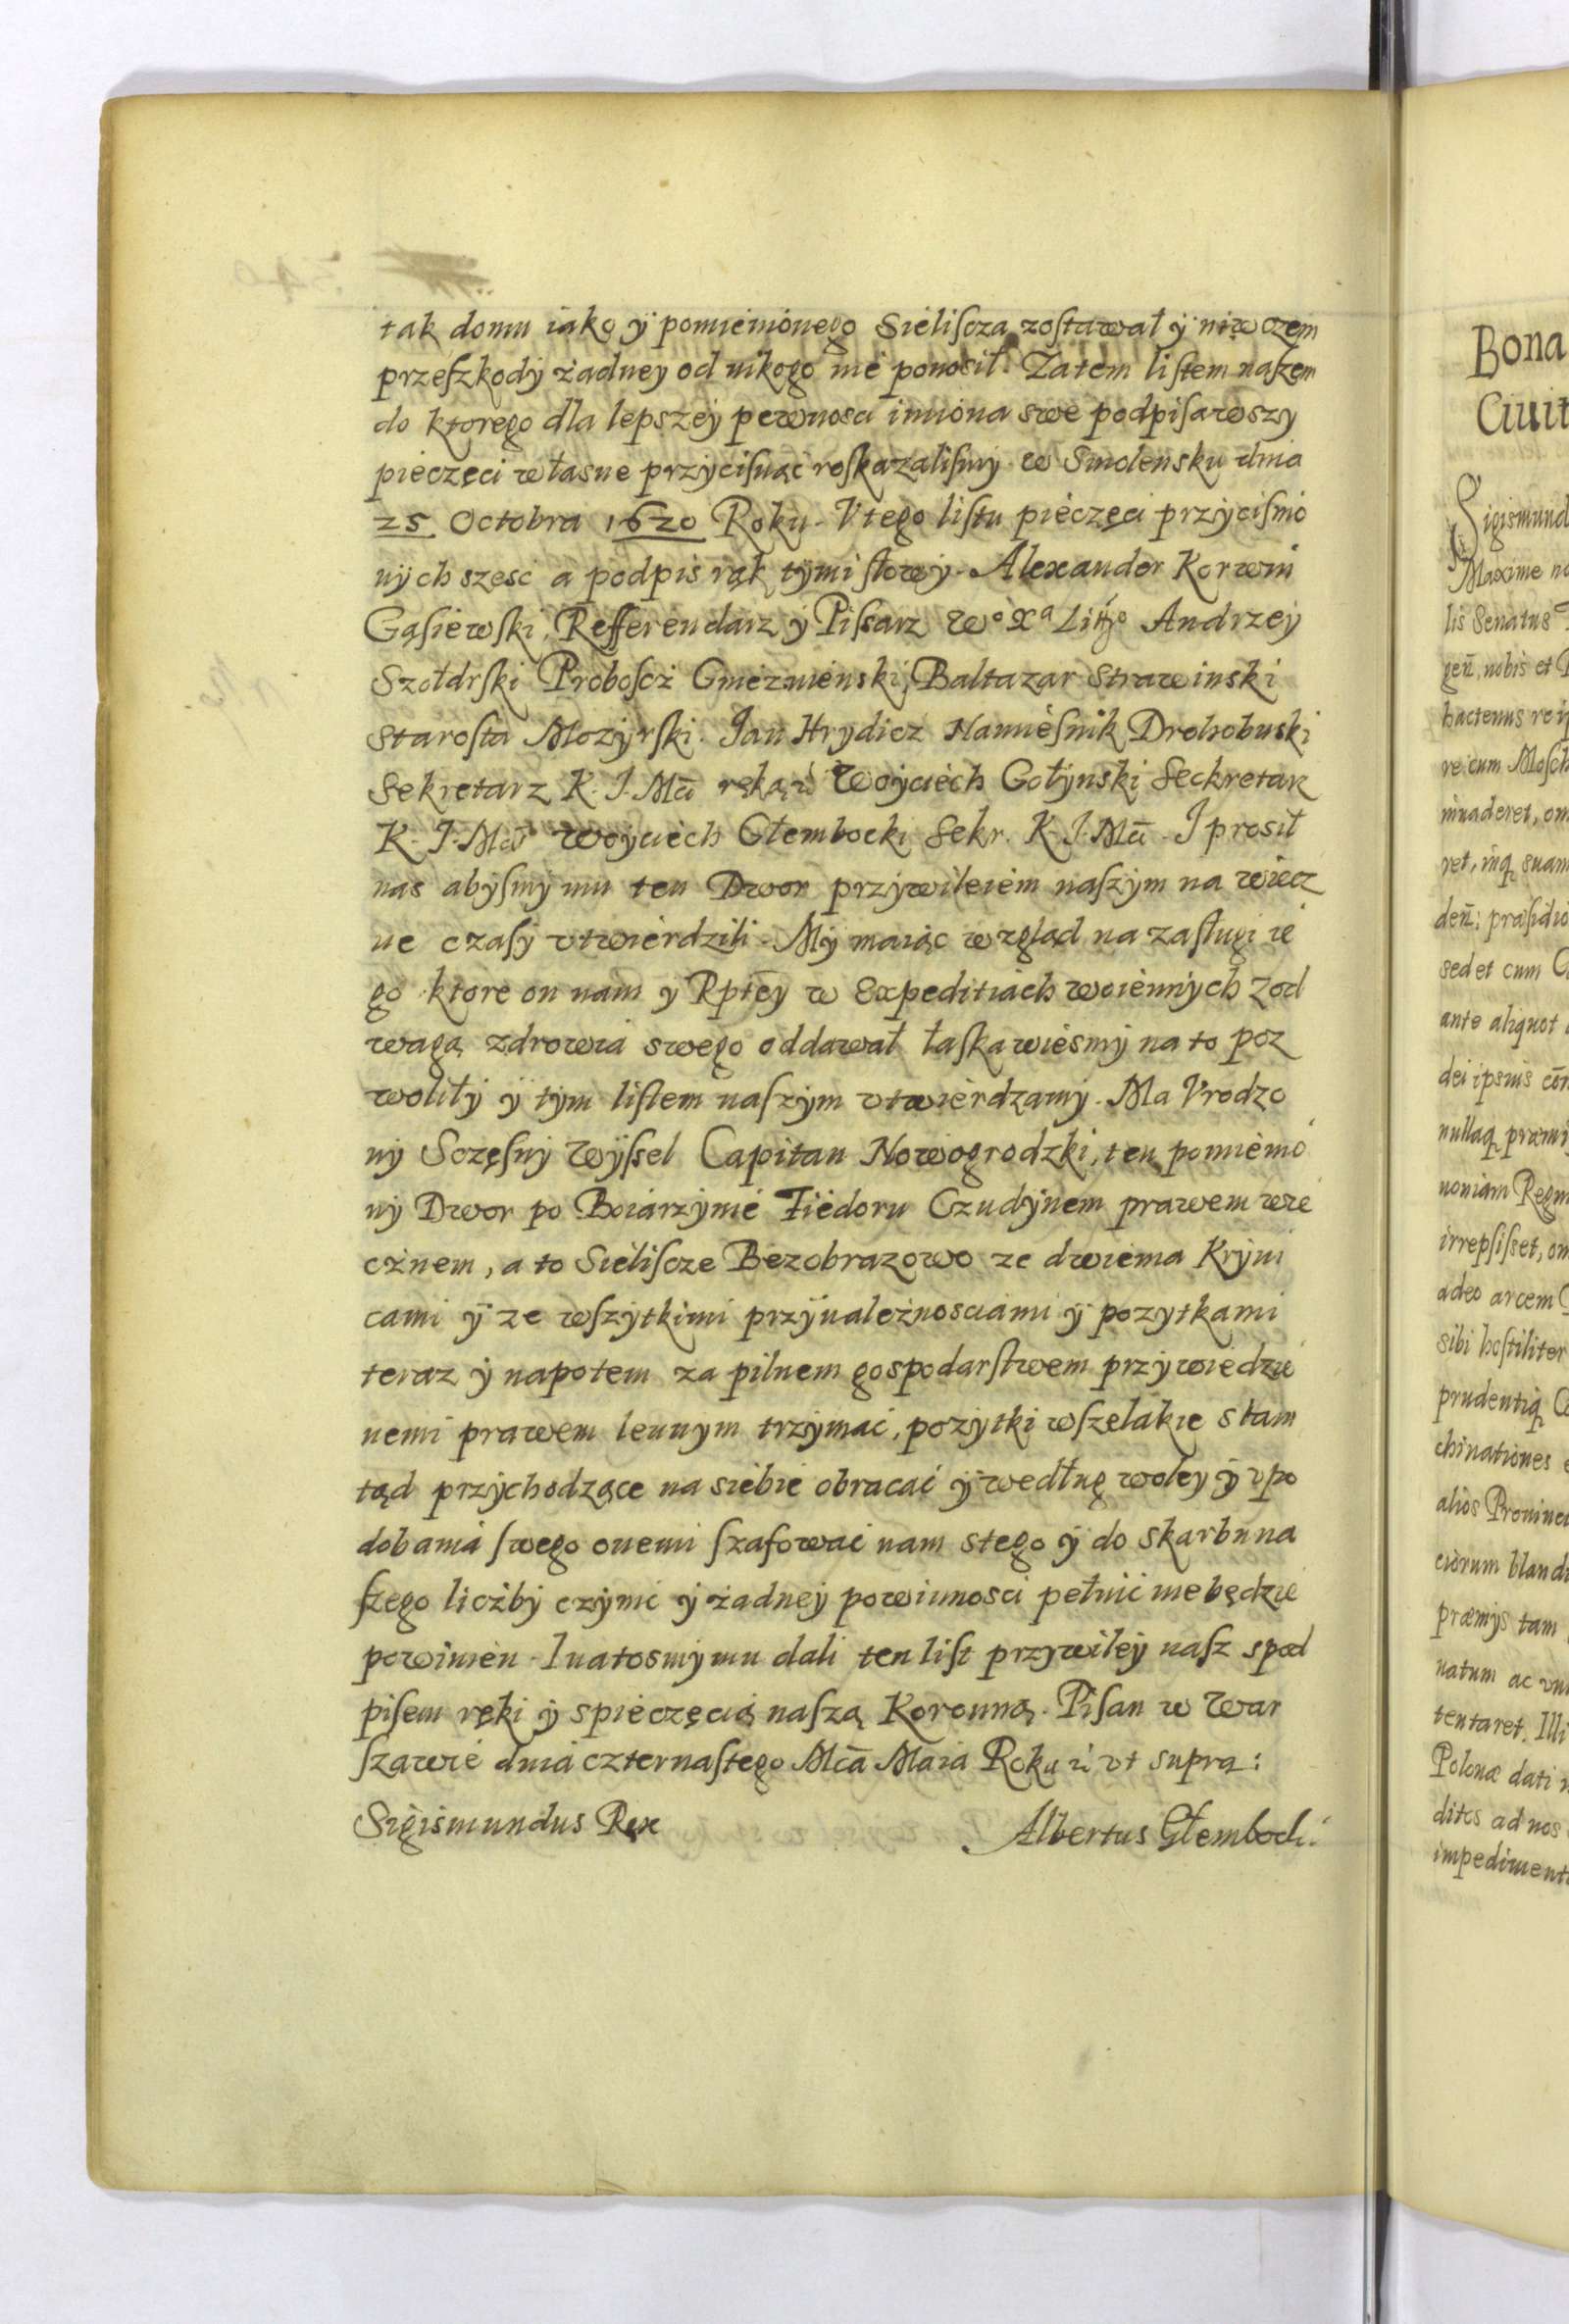 tak domu iako ÿ pomienionego Sieliſcza zoſtawał ÿ niwczem
przeſzkodÿ żadney od nikogo nie ponosił. Zatem liſtem naſzem
do ktorego dla lepszeÿ pewnosci imiona swe podpiſawszy
pieczęci własne przÿciſnąć roſkazaliſmÿ w Smolensku dnia
25 Octobra 1620 Roku. V tego liſtu pieczęci przÿciſnio
nÿch szesć a podpis rąk tÿmi słowÿ. Alexander Korwin
Gąſiewſki, Refferendarz ÿ Piſsarz Wº Xª Littº Andrzeÿ
Szołdrſki Proboſcz Gnieznienski, Baltazar Strawinski
Staroſta Mozÿrſki. Jan Hrydicz Namiesnik Drohobuski
Sekretarz K. J. Mći ręką Woÿciech Gołÿnski Seckretarz
K. J. Mći Woyciech Głembocki Sekr. K. J. Mći. I prosił
nas abÿſmÿ mu ten Dwor przÿwileiem naſzÿm na wiecz
ne czaſÿ vtwierdzili. Mÿ maiąc wzgląd na zaſługi ie
go ktore on nam y Rptēy w Expeditiach woiennÿch zod
wagą zdrowia swego oddawał łaſkawiesmÿ na to poz
wolilÿ ÿ tÿm liſtem naſzÿm vtwierdzamÿ. Ma Vrodzo
nÿ Sczęſnÿ Wÿſsel Capitan Nowogrodzki, ten pomienio
nÿ Dwor po Boiarzÿnie Fiedoru Czudÿnem prawem wie
cznem, a to Sieliſcze Bezobrazowo ze dwiema Krÿni
cami ÿ ze wſzÿtkimi przÿnależnosciami ÿ pozytkami
teraz ÿ napotem za pilnem gospodarſtwem przÿwiedzie
nemi prawem lennym trzÿmać, pozÿtki wſzelakie stam
tąd przÿchodzące na siebie obracać ÿ wedługę woleÿ ÿ vpo
dobania ſwego onemi ſzafować nam stego ÿ do skarbu na
ſzego liczbÿ czÿnić ÿ żadneÿ powinnosci pełnić nie będzie
powinien. I natosmÿ mu dali ten liſt przÿwileÿ naſz spod
piſem ręki ÿ spieczęcią naſzą Koronną. Piſan w War
ſzawie dnia czternaſtego Mcā Maia Roku vt supra:
Sigismundus Rex
Albertus Głembocki.
Bona
Ciuit
Sigismund
Maxime no
lis Senatus
gen̄, nobis et
hactenus reip
re cum Moſch
inuaderet, om
ret, inq suam
den̄; præſidio
sed et cum
ante aliquot
dei ipsius cōn
nullaq præmi
noniam Regni
irrepſiſset, om
adeo arcem
sibi hoſtiliter
prudentiq
chinationes
alios Prouinci
ciorum blandi
præmÿs tam
natum ac
tentaret. Illi
Polonæ dati
dites ad nos
impediment